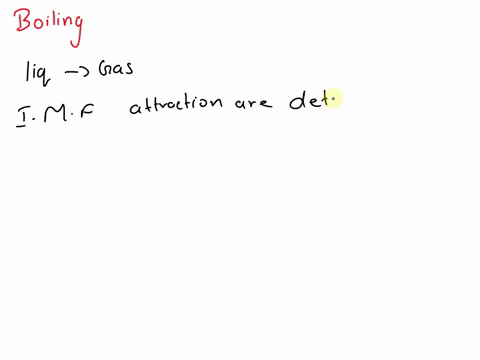 Boiling
liq → Gas
I.M.F attraction are det